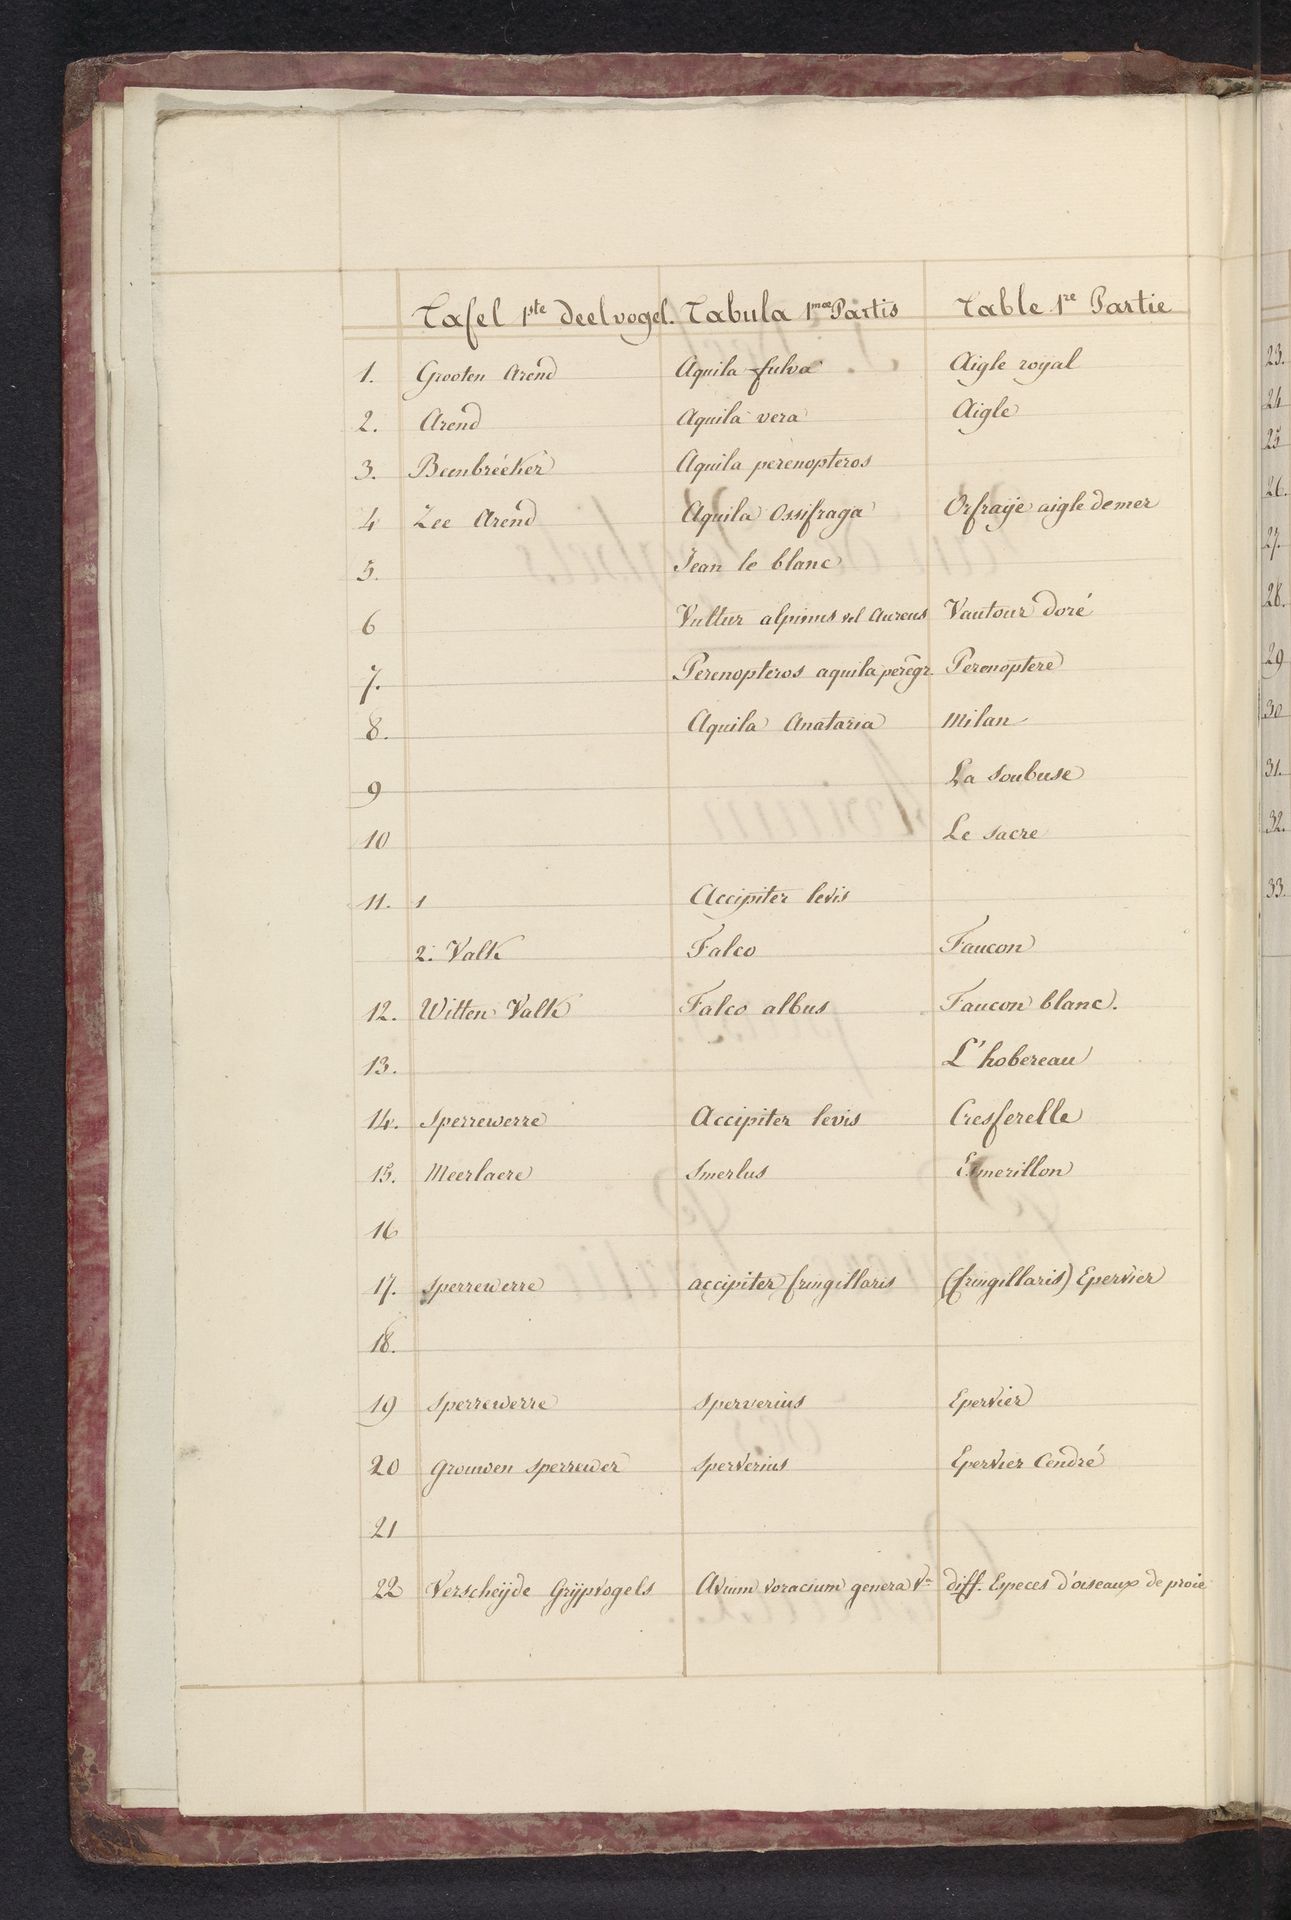 Tafel 1ste deel vogel. Tabula 1mae Partis Table 1re Partie
1. Grooten Arend Aquila fulva Aigle royal
2. Arend Aquila vera Aigle
3. Beenbréeker Aquila perenopteros
4 Zee Arend Aquila Ossifraga Orfraÿe aigle de mer
5. Jean le blanc
6 Vultur alpinus vel Aureus Vautour doré
7. Perenopteros aquila peregr. Perenoptere
8. Aquila Anataria Milan
9 La Soubuse
10 Le Sacre
11. 1 Accipiter levis
2. Valk Falco Faucon
12. Witten Valk Falco albus Faucon blanc.
13. L'hobereau
14. Sperrewerre Accipiter levis Cresserelle
15. Meerlaere Smerlus Esmerillon
16
17. Sperrewerre accipiter fringillaris (fringillaris) Epervier
18.
19 Sperrewerre Sperverius Epervier
20 Grouwen Sperrewer Sperverius Epervier Cendré
21
22 Verscheÿde Grÿpvogels Avium voracium genera Va diff. Especes d'oiseaux de proie
23.
24
25
26.
27.
28.
29
30
31.
32.
33